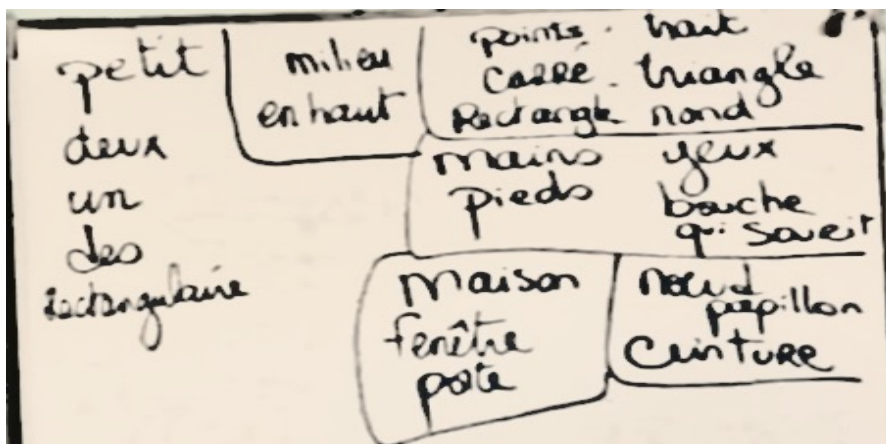 petit
deux
un
des
rectangulaire
milieu
en haut
points - trait
carré - triangle
Rectangle rond
mains yeux
pieds bouche
qui sourit
maison
fenêtre
porte
nœud
papillon
Ceinture